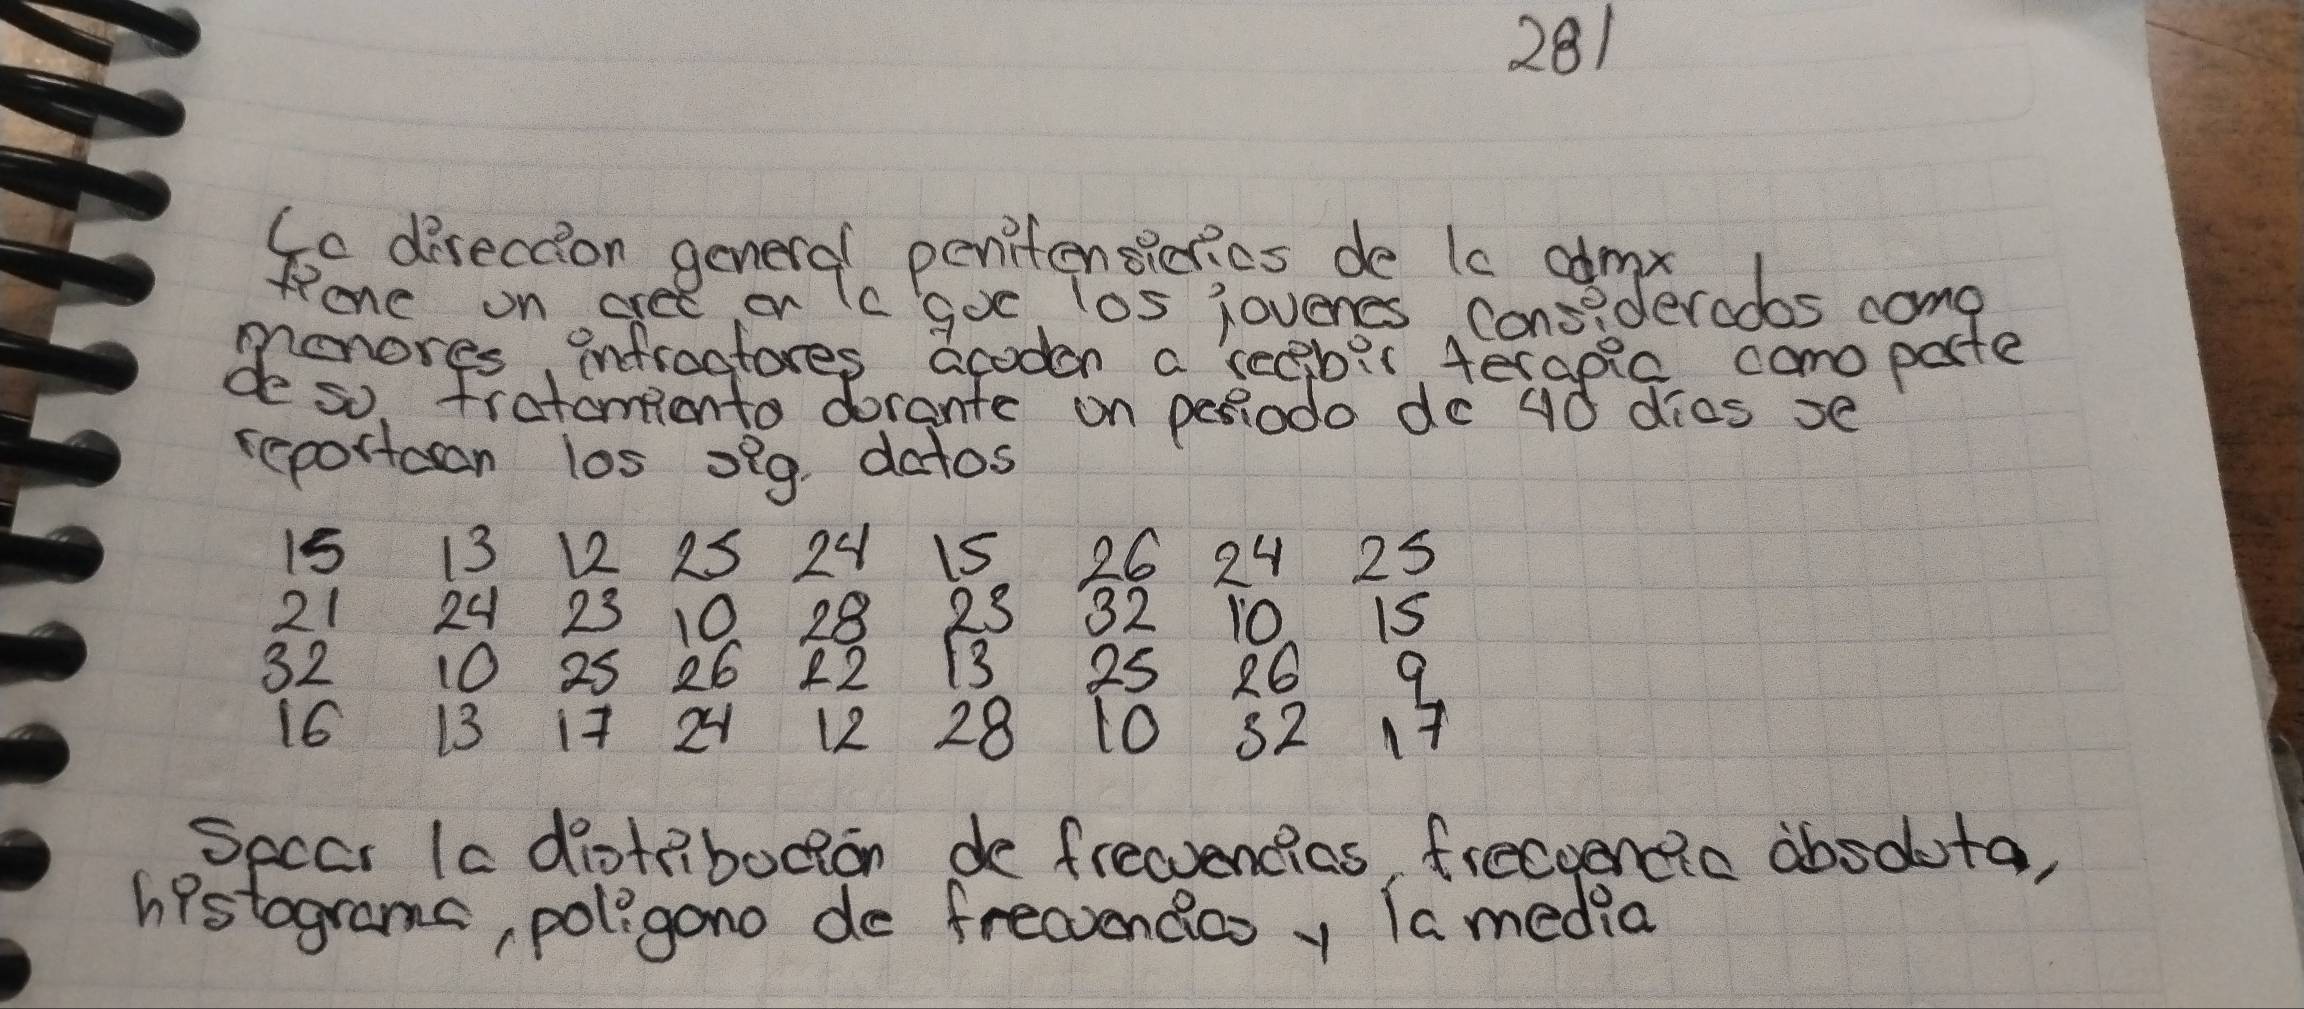 281
La direccion general penitensiarias de la cdmx
tiene un area en la que los jovenes considerados como
menores infractores acuden a recibir terapia como parte
de su tratamiento durante un periodo de 40 dias se
reportaran los sig. datos
15 13 12 25 24 15 26 24 25
21 24 23 10 28 23 32 10 15
32 10 25 26 22 13 25 26 9
16 13 17 24 12 28 10 32 17
Sacar la distribución de frecuencias, frecuencia absoluta,
histograma, poligono de frecuencias y la media